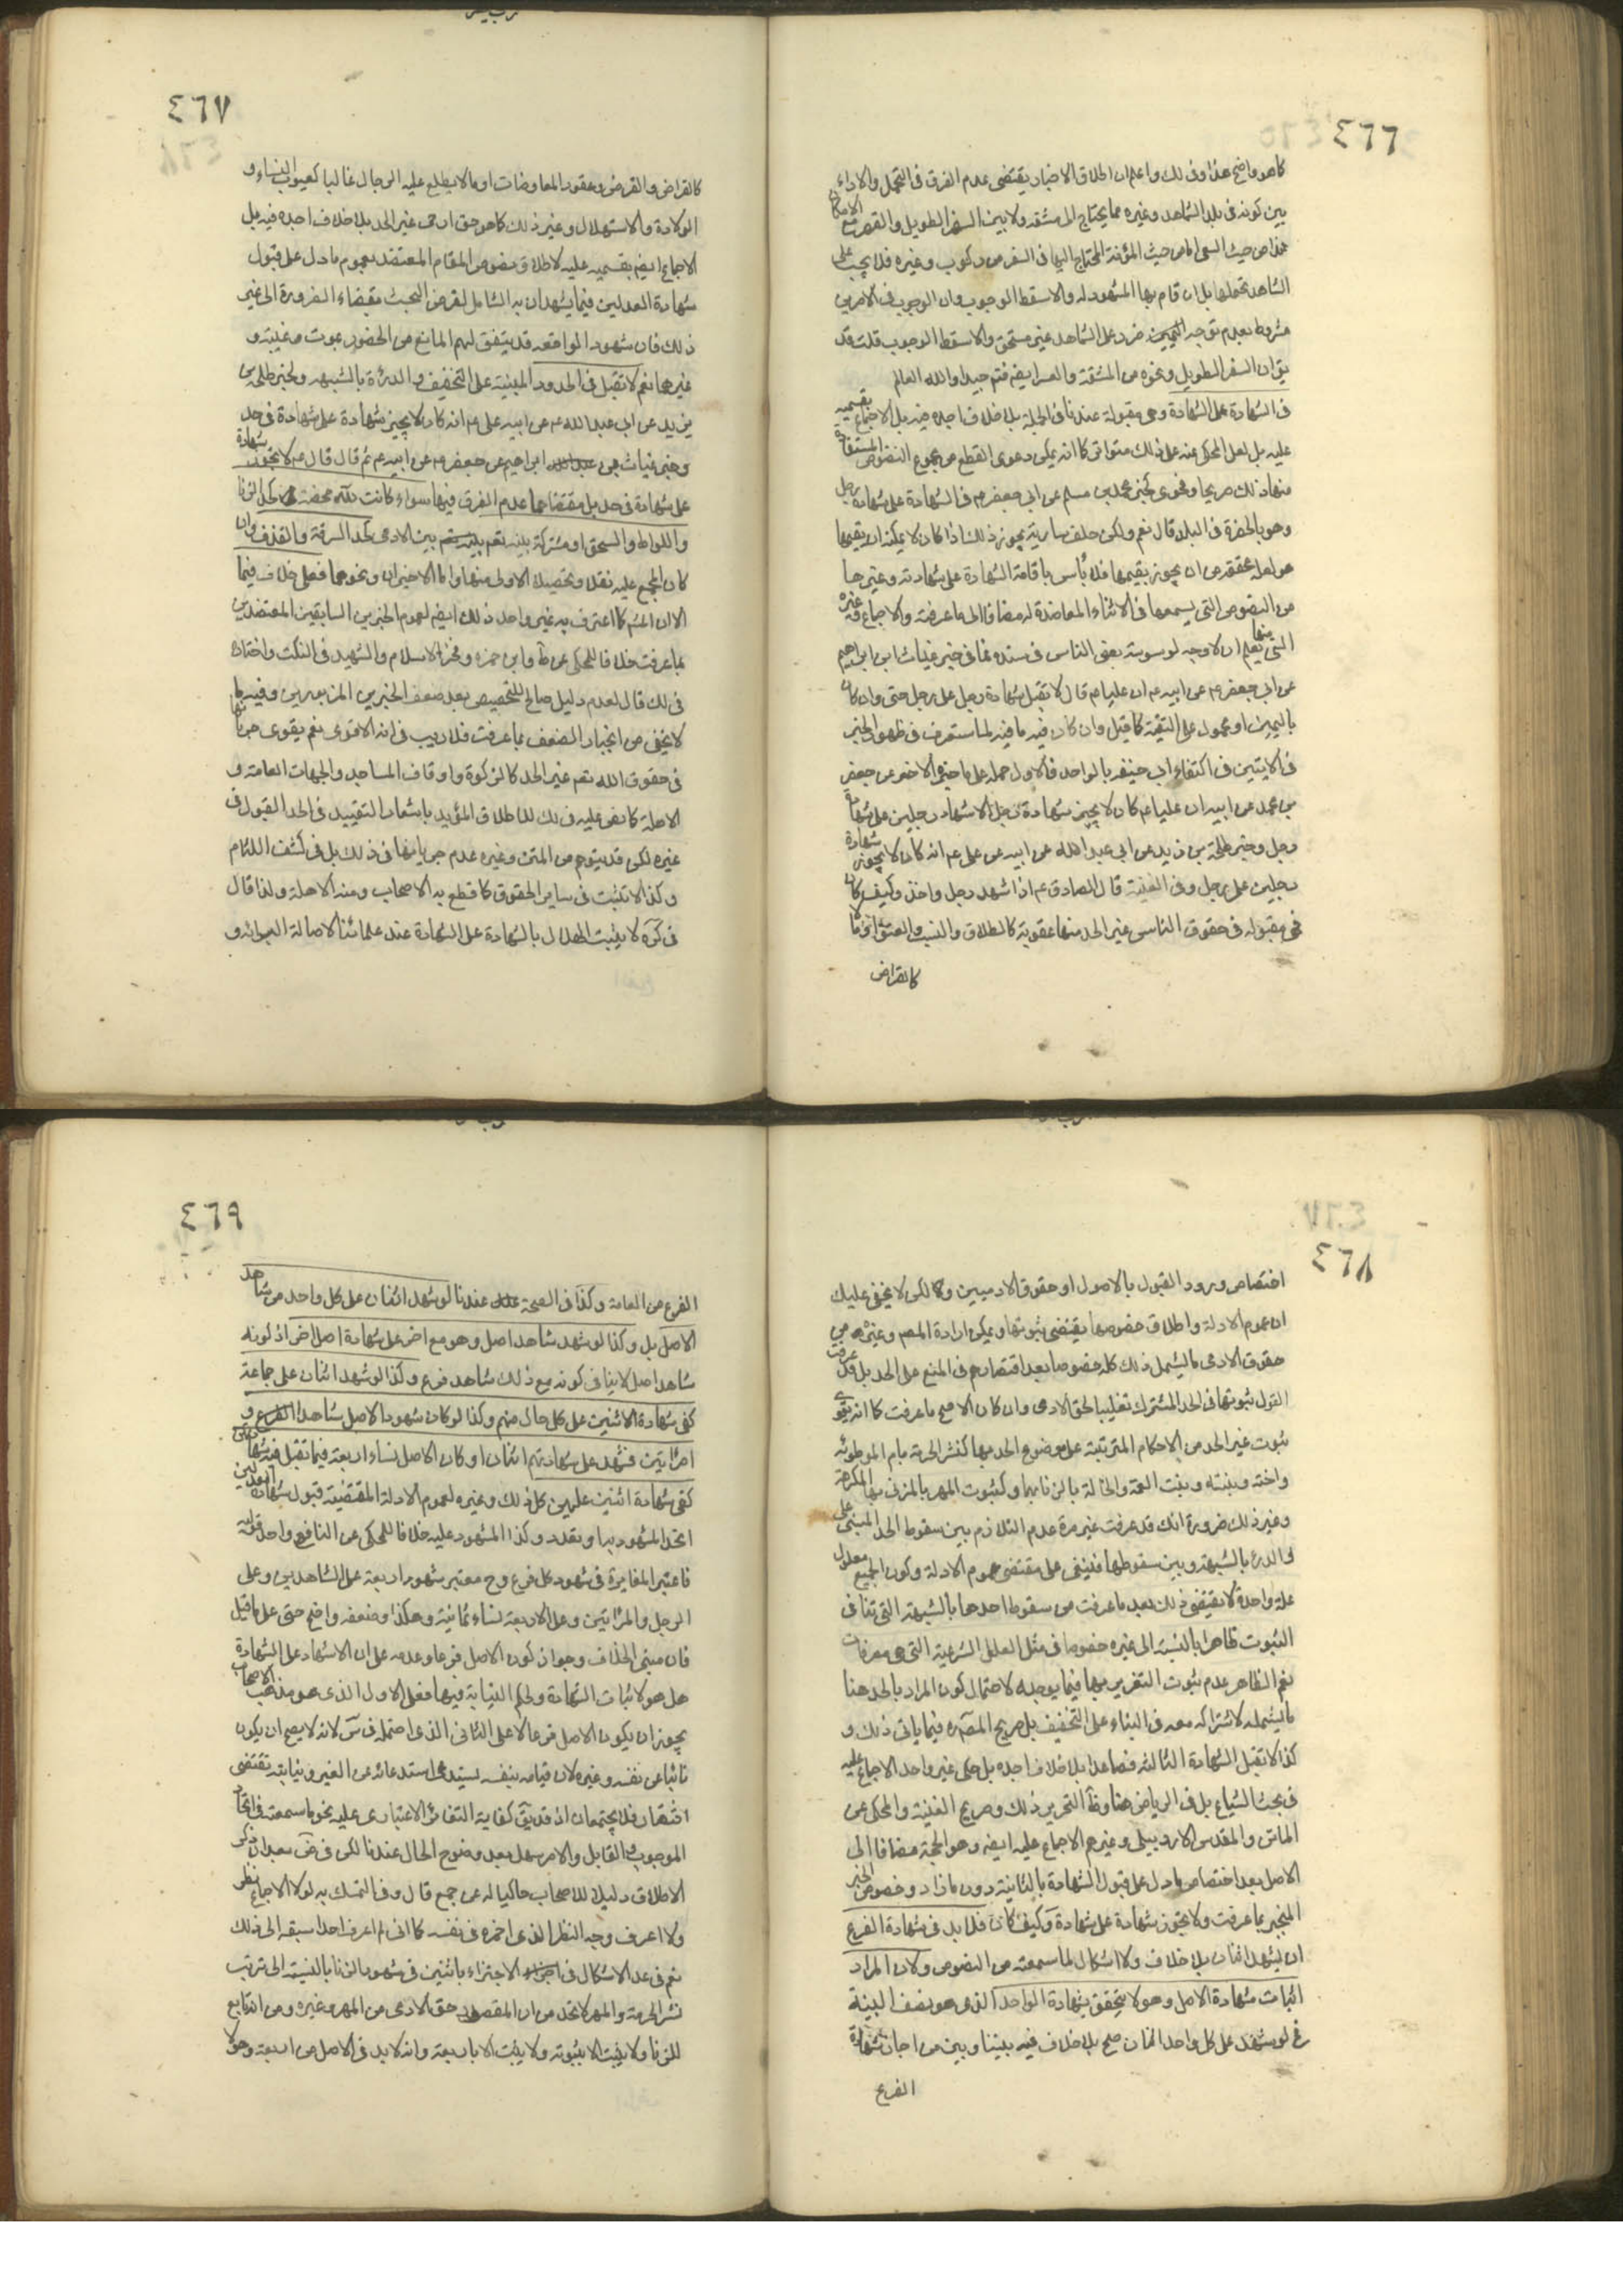 ٤٦٦
كما هو واضح هذا وفى ذلك واعلم ان اطلاق الاخبار يقتضى عدم الفرق فى التحمل والاداء
بين كونه فى بلد الشاهد وغيره مما يحتاج الى مشقه ولا بين السفر الطويل والقصير مع الامكان
هذا من حيث السعى اما من حيث المؤنة المحتاج اليها فى السفر من ركوب وغيره فلا يجب على
الشاهد تحملها بل ان قام بها المشهود له والا سقط الوجوب وان الوجوب فى الامرين
مشروط بعدم توجه ضرر على الشاهد غير مستحق والا سقط الوجوب قلت قد
يق ان السفر الطويل ونحوه من المشقة والعسر ايضم فتم جيدا والله العالم
فى الشهادة على الشهادة وهى مقبولة عندنا فى الجملة بلا خلاف اجده فيه بل الاجماع بقسميه
عليه بل لعل المحكى عنه على ذلك متواتر كما انه يمكن دعوى القطع من مجموع النصوص المستفاد
منها ذلك صريحا وفحوى كخبر محمد بن مسلم عن ابى جعفر م فى الشهادة على شهادة رجل
وهو بالحضرة فى البلد قال نعم ولكن خلف سارية يجوز ذلك اذا كان لا يمكنه ان يقيمها
هو لعلة تمنعه من ان يحضر يقيمها فلا بأس باقامة الشهادة على شهادته وغيرها
من النصوص التى يسمعها فى الاثناء المعاضدة له مضافا الى ما عرفت والاجماع وغيره
التى منها يعلم ان لا وجه لوسوسة بعض الناس فى سنده فما فى خبر غياث ابن ابراهيم
عن ابى جعفر م عن ابيه م ان عليا م قال لا تقبل شهادة رجل على رجل حى وان كان
باليمين او محمول على التقية كما قيل وان كان فيه ما فيه لما ستعرف فى ظهور الخبر
فى الايتين فى اكتفاء ابى حنيفه بالواحد فالاول حمله على ما فى خبره الاخر عن جعفر
بن محمد عن ابيه ان عليا م كان لا يجيز شهادة رجل الا شهادة رجلين على شهادة
رجل وخبر طلحة بن زيد عن ابى عبد الله عن ابيه عن على م انه كان لا يجوز شهادة
رجلين على رجل وفى الفقيه قال الصادق م اذا شهد رجل واخذ وكيف كان
فهى مقبولة فى حقوق الناس غير الحد منها عقوبة كالطلاق والنسب والعتق او مالا
كالقراض
٤٦٧
كالقراض والقرض وعقود المعاوضات او ما لا يطلع عليه الرجال غالبا كعيوب النساء و
الولادة والاستهلال وغير ذلك كما هو حق ادمى غير الحد بلا خلاف اجده فيه بل
الاجماع ايضم بقسميه عليه لاطلاق نصوص المقام المعتضد بعموم ما دل على قبول
شهادة العدلين فيما يشهدان به الشامل لفرض البحث بقضاء الضرورة الى غير
ذلك فان شهود الواقعه قد يتفق لهم المانع من الحضور بموت وغيبة و
غيرهما نعم لا تقبل فى الحدود المبنية على التخفيف والدرئة بالشبهه ولخبر طلحة بن
يزيد عن ابى عبد الله م عن ابيه على م انه كان لا يجيز شهادة على شهادة فى حد
وخبر غياث بن ابراهيم عن جعفر م عن ابيه م ثم قال قال على م لا يجوز شهادة
على شهادة فى حد بل مقتضاهما عدم الفرق فيها سواء كانت لله محضة كحد الزنا
واللواط والسحق او مشتركة بينه تعم بين الادمى كحد السرقة والقذف وان
كان المجمع عليه نقلا وتحصيلا الاولى منهما واما الاخيران ونحوهما فعلى خلاف فيهما
الا ان المشم كما اعترف به غير واحد ذلك ايضم لعموم الخبرين السابقين المعتضدين
بما عرفت خلافا للمحكى عن ط وابن حمزه وفخر الاسلام والشهيد فى النكت واختاره
فى لك قال لعدم دليل صالح للتخصيص بعد ضعف الخبرين المزبورين وفيه ما
لا يخفى من انجبار الضعف بما عرفت فلا ريب فى انه الاقوى نعم يقوى جريانها
فى حقوق الله تعم غير الحد كالزكوة واوقاف المساجد والجهات العامة و
الاهلة كما نص عليه فى لك للاطلاق المؤيد باشعار التقييد فى الحد القبول فى
غيره لكن قد يتوهم من المتن وغيره عدم جريانها فى ذلك بل فى كشف اللثام
وكذا لا تثبت فى ساير الحقوق كما قطع به الاصحاب ومنه الاهلة ولذا قال
فى كره لا يثبت الهلال بالشهادة على الشهادة عند علمائنا لاصالة البرائه و
٤٦٨
اختصاص ورود القبول بالاصول او حقوق الادميين وكا لكن لا يخفى عليك
ان عموم الادلة واطلاق خصوصها يقتضى ثبوتها ويمكن ارادة المصم وغيره من
حقوق الادمى ما يشمل ذلك كله خصوصا بعد اقتصارهم فى المنع على الحد بل قد عرفت
القول ثبوتها فى الحد المشترك تغليبا لحق الادمى وان كان الاصح ما عرفت كما انه يقوى
ثبوت غير الحد من الاحكام المترتبة على موضوع الحد بها كنشر الحرمة بام الموطوئه
واخته وبنته وبنت العمة والخالة بالزنا بهما وكثبوت المهر بالمزنى بها المكرهة
وغير ذلك ضرورة انك قد عرفت غير مرة عدم التلازم بين سقوط الحد المبنى على
الدرء بالشبهة وبين سقوطها فيبقى على مقتضى عموم الادلة وكون الجميع معلول
علة واحدة لا يقتضى ذلك بعد ما عرفت من سقوط احدها بالشبهة التى تنافى
الثبوت ظاهرا بالنسبة الى غيره خصوصا فى مثل العلل الشرعية التى هى معرفات
نعم الظاهر عدم ثبوت التعزير بها فيما يوجبه لاحتمال كون المراد بالحد هنا
ما يشمله لاشتراكه معه فى البناء على التخفيف بل صريح المصم فيما ياتى ذلك و
كذا لا تقبل الشهادة الثالثه فصاعدا بلا خلاف اجده بل حكى غير واحد الاجماع عليه
فى بحث الشياع بل فى الرياض هنا وظ التحرير ذلك وصريح الغنية والمحكى عن
الماتن والمقدس الاردبيلى وغيرهم الاجماع عليه ايضم وهو الحجة مضافا الى
الاصل بعد اختصاص ما دل على قبول الشهادة بالثانية دون ما زاد وخصوص الخبر
المنجبر بما عرفت ولا يجوز شهادة على شهادة وكيف كان فلا بد فى شهادة الفرع
ان يشهد اثنان بلا خلاف ولا اشكال لما سمعته من النصوص ولان المراد
اثبات شهادة الاصل وهو لا يتحقق بشهادة الواحد الذى هو نصف البينة
نعم لو شهد على كل واحد اثنان صح بلا خلاف فيه بيننا وبين من اجاز شهادة
الفرع
٤٦٩
الفرع من العامة وكذا فى الصحة عندنا لو شهد اثنان على كل واحد من شاهد
الاصل بل وكذا لو شهد شاهد اصل وهو مع اخر على شهادة اصل اخر اذ كونه
شاهد اصل لا ينافى كونه مع ذلك شاهد فرع وكذا لو شهد اثنان على جماعة
كفى شهادة الاثنين على كل حال منهم وكذا لو كان شهود الاصل شاهدا و
امرأتين فشهد على شهادتهم اثنان او كان الاصل نساء اربعة فيما تقبل فيه شهادتهن
كفى شهادة اثنين عليهن كل ذلك وغيره لعموم الادلة المقتضية قبول شهادة العدلين
اتحد المشهود بها وتعدد وكذا المشهود عليه خلافا للمحكى عن الشافعى واحد قوليه
فاعتبر المغايرة فى شهود كل فرع وح معتبر شهود اربعة على الشاهدين وعلى
الرجل والمرأتين وعلى الاربعة نساء ثمانية وهكذا وضعفه واضح حتى على ما قيل
فان مبنى الخلاف وجواز كون الاصل فرعا وعدمه على ان الاشهاد على الشهادة
هل هو لاثبات الشهادة ولحكم النيابة فيها فعلى الاول الذى هو مذهب الاصحاب
يجوز ان يكون الاصل فرعا لا على الثانى الذى احتمله فى س لانه لا يصح ان يكون
نائبا عن نفسه وغيره لان قيامه بنفسه يستدعى استدعائه عن الغير ونيابته تقتضى
افتقار فلا يجتمعان اذ قد يق كفاية التغائر الاعتبارى عليه نحو ما سمعته فى اتحاد
الموجوب والقابل والامر سهل بعد وضوح الحال عندنا لكن فى ض بعد ان ذكر
الاطلاق دليلا للاصحاب حاكيا له عن جمع قال وفى التمسك به لولا الاجماع نظر
ولا اعرف وجه النظر الذى اضمره فى نفسه كما انى لم اعرف احدا سبقه الى ذلك
نعم فى عد الاشكال فى الاجتزاء باثنين فى شهود الزنا بالنسبة الى ترتب
نشر الحرمة والمهر لا تحد من ان المقصود حق الادمى من المهر وغيره ومن انه تابع
للزنا ولا يثبت الا بثبوته ولا يثبت الا باربعة وانه لا بد فى الاصل من اربعة وهو لا